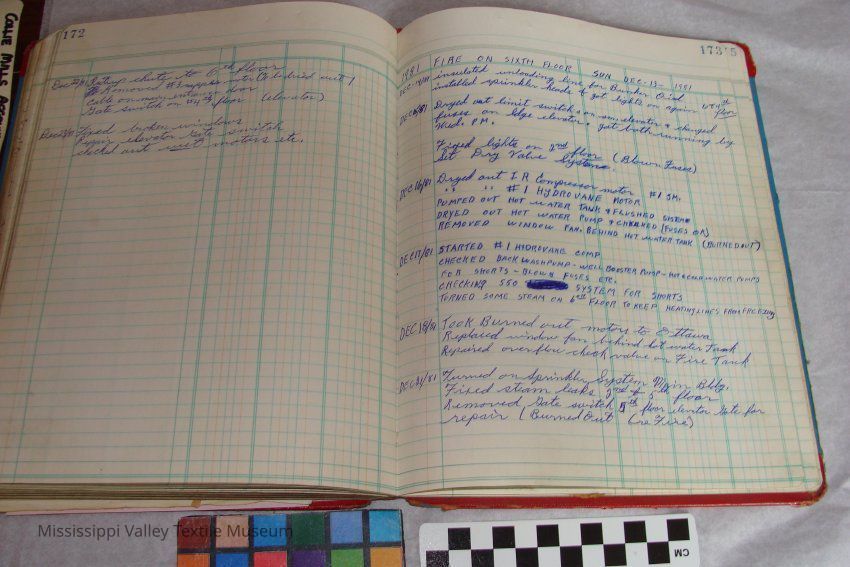 172
Dec 22/81
chute to 6th floor
Removed #3
cable on main entrance door
Gate switch on 4th floor (elevator)
Fixed broken windows
Repair elevator Gate switch
checked out wet motors etc.
173
1981 FIRE ON SIXTH FLOOR SUN DEC-13- 1981
DEC-14/81 insulated unloading line for Bunker Oil
installed sprinkler heads & got lights on again 6th floor
Dryed out limit switch on sm. elevator & changed
fuses on lge elevator & got both running by
Wed. P.M.
Fixed lights on 2nd floor (Blown Fuses)
Set Dry Valve System
DEC 16/81 Dryed out I R Compressor motor #1 SM.
" " " #1 HYDROVANE MOTOR
PUMPED OUT HOT WATER TANK & FLUSHED SYSTEM
DRYED OUT HOT WATER PUMP & CHECKED (FUSES OK)
REMOVED WINDOW FAN. BEHIND HOT WATER TANK (BURNED OUT)
DEC 17/81 STARTED #1 HYDROVANE COMP
CHECKED BACKWASH PUMP - WELL BOOSTER PUMP - HOT & COLD WATER PUMPS
FOR SHORTS - BLOWN FUSES ETC.
CHECKING 550 SYSTEM FOR SHORTS
TURNED SOME STEAM ON 6th FLOOR TO KEEP HEATING LINES FROM FREEZING
DEC 18/81 Took Burned out motors to Ottawa
Replaced window fan behind hot water tank
Repaired overflow check valve on Fire Tank
DEC 21/81 Turned on Sprinkler System Main Bldg.
Fixed steam leaks 2nd & 5th floor
Removed Gate switch 5th floor elevator gate for
repair (Burned Out (re Fire)
Mississippi Valley Textile Museum
CM